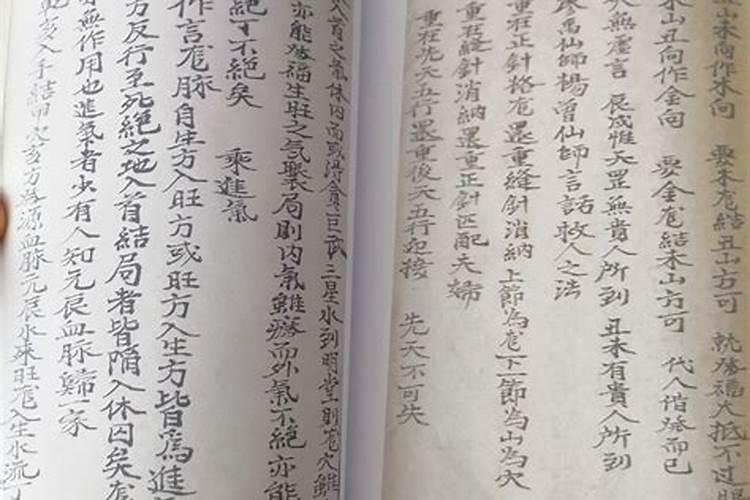 丑山未向作木向　要未龙結丑山方可　就發福大抵不过
未山丑向作金向　要金龙結未山方可　代人偕發而已
又無虛言　辰戍惟天罡無貴人所到　丑未有貴人所到
救萬仙師楊曾仙師言語救人之法
重在正針格龙還重縫針消納　上節為龙下一節為山為穴
重在縫針消納還重正針匹配夫婦
重在先天五行還重後天五行起接　先天不可失
入首之氣休囚而或得貪巨武三星水到明堂則龙穴雖
亦能發福生旺之気聚局則内氣雖癈而外氣不絕亦能
絕了不絕矣　乘進氣
作言龙脉自生方入旺方或旺方入生方皆為進
方反行至死絕之地入首結局者皆陥入休囚矣龙
無作用也進氣者少有人知元辰血脉歸一家
入手結
源血脉元辰水来旺龙入生水流